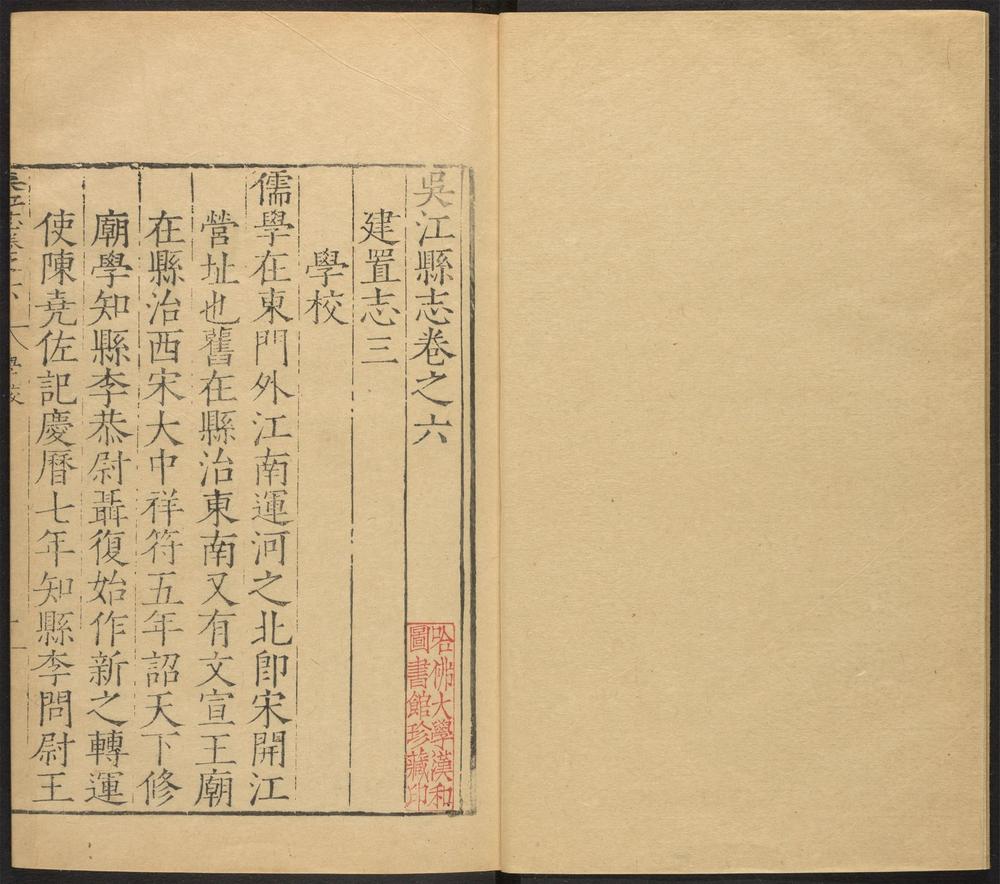 吳江縣志卷之六
建置志三
學校
儒學在東門外江南運河之北卽宋開江
營址也舊在縣治東南又有文宣王廟
在縣治西宋大中祥符五年詔天下修
廟學知縣李恭尉聶復始作新之轉運
使陳堯佐記慶曆七年知縣李問尉王
哈佛大學漢和
圖書館珍藏印